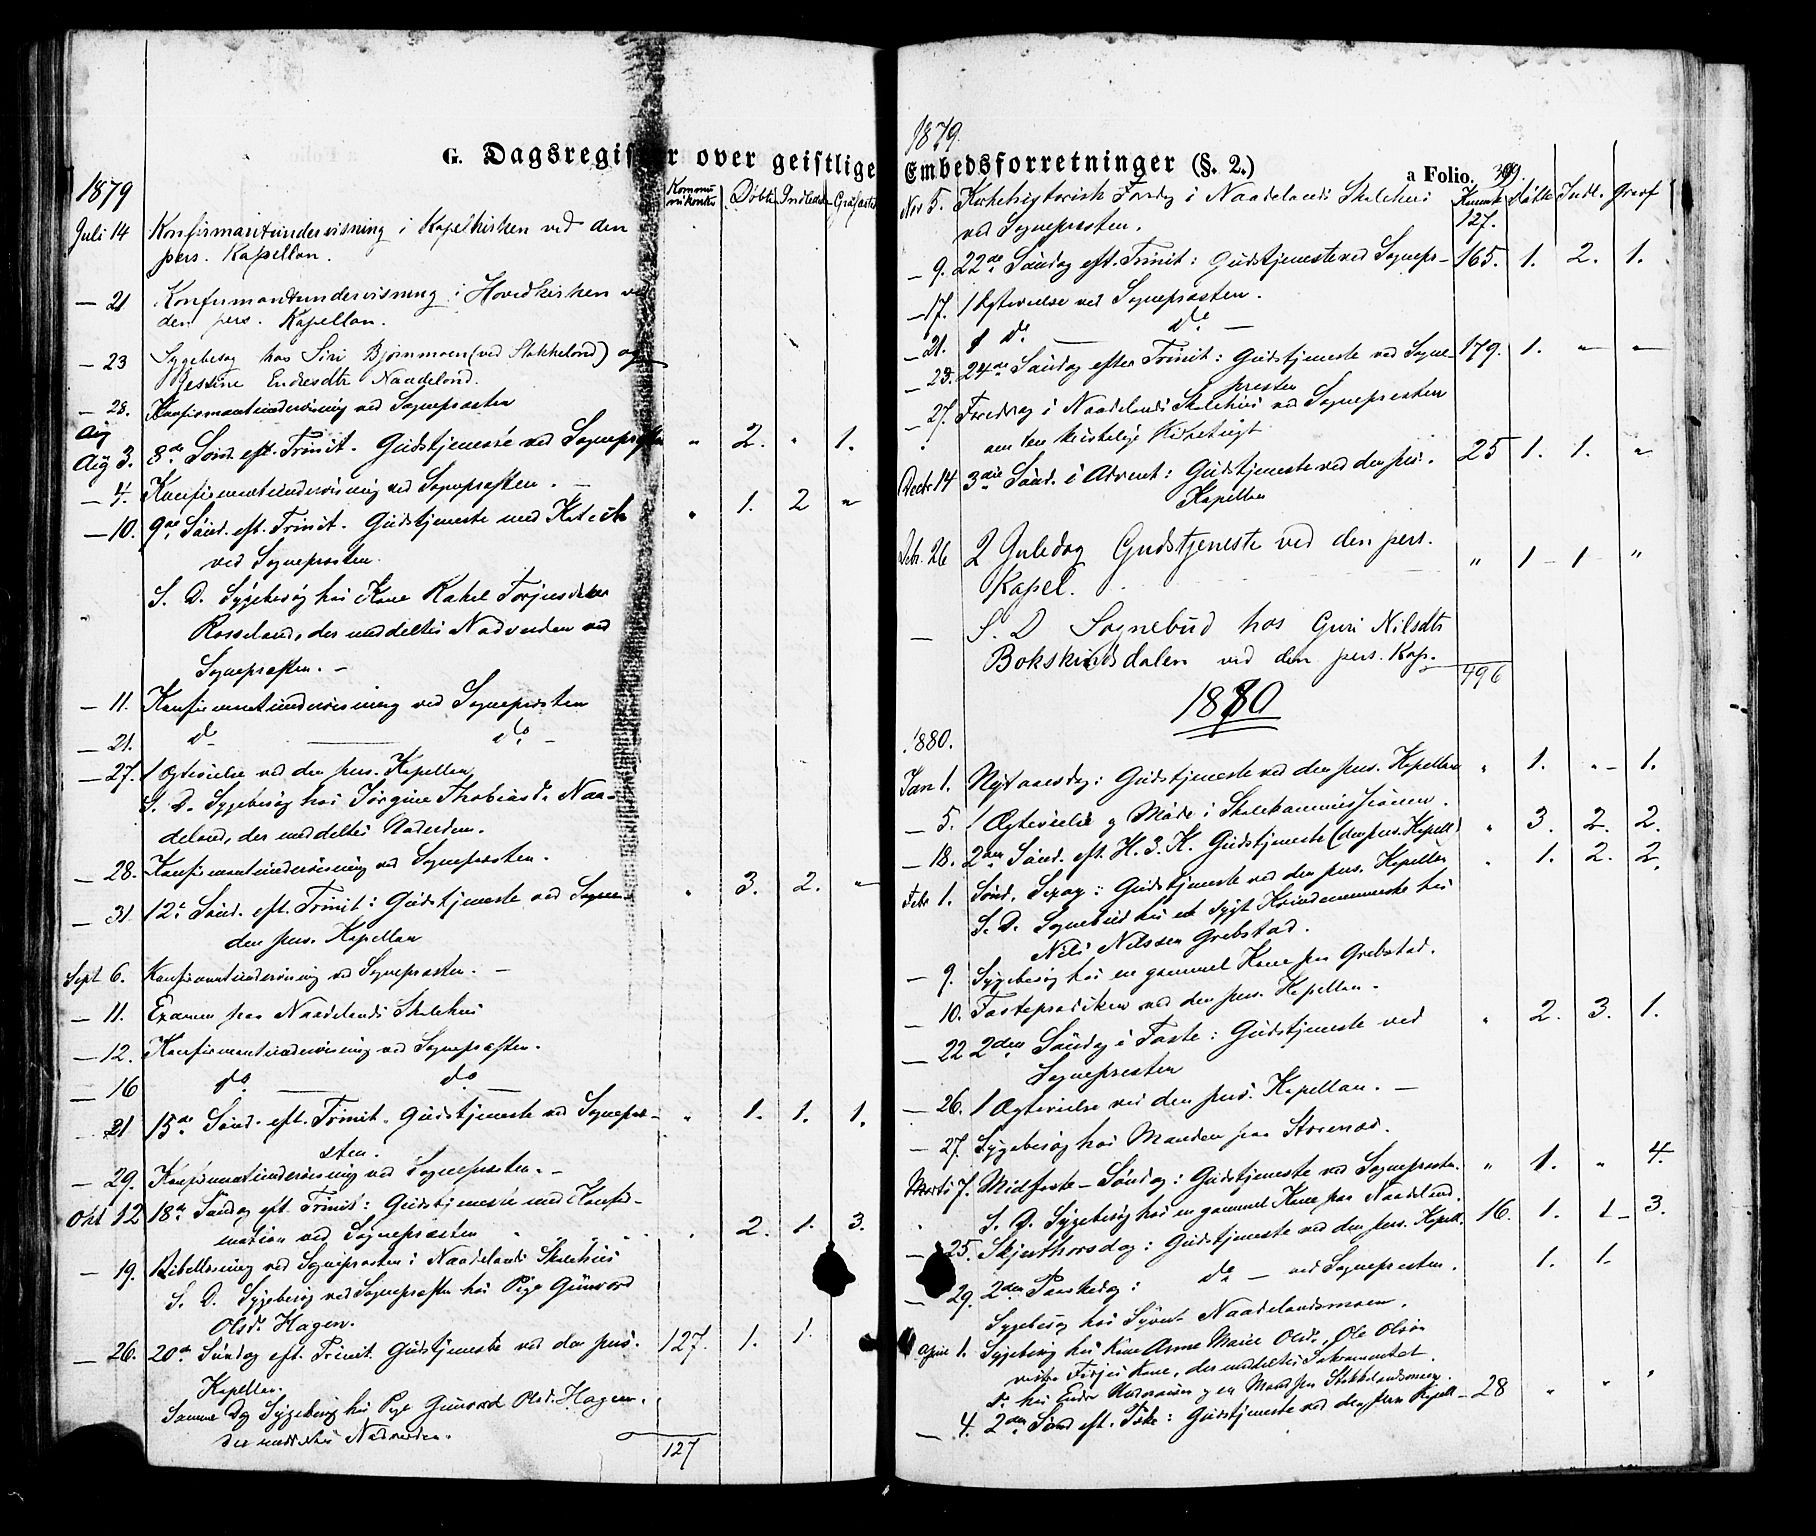 G. Dagsregister over geistlige
1879
Kommunikanter Døbte Indledede Gravfæstede
Juli 14 Konfirmantundervisning i Kapelkirken ved den
pers. Kapellan.
— 21 Konfirmantundervisning i Hovedkirken ved
den pers. Kapellan.
— 23 Sygebesøg hos Siri Bjørnmoen (ved Stokkelond) og
Jessine Endresdtr Naadelond.
— 28. Konfirmantundervisning ved Sognepræsten
Aug
Aug 3. 8de Sønd. eft. Trinit. Gudstjeneste ved Sognepræsten " 2. " 1.
— 4. Konfirmantundervisning ved Sognepræsten. —
— 10. 9de Sønd. eft. Trinit. Gudstjeneste med Katech " 1. 2 "
ved Sognepræsten.
S. D. Sygebesøg hos Kone Rakel Torjusdatter
Rosseland, der meddeltes Nadverden ved
Sognepræsten. —
— 11. Konfirmantundervisning ved Sognepræsten
— 21. do — do —
— 27. 1 Ægtevielse ved den pers. Kapellan
S. D. Sygebesøg hos Jørgine Thobiasd. Naa-
deland, der meddeltes Naderden.
— 28. Konfirmantundervisning ved Sognepræsten.
— 31. 12te Sønd. eft. Trinit: Gudstjeneste ved Sogne " 3. 2. "
den pers. Kapellan
Sept 6. Konfirmantundervisning ved Sognepræsten. —
— 11. Examen paa Naadelands Skolehus
— 12. Konfirmantundervisning ved Sognepræsten.
— 16 do — do —
21 15de Sønd. eft. Trinit. Gudstjeneste ved Sognepræ- " 1. 1. 1.
sten.
— 29. Konfirmantundervisning ved Sognepræsten. —
Okt 12 18de Søndag eft. Trinit: Gudstjeneste med Konfir-
mation ved Sognepræsten " 2. 1. 3.
— 19. Bibellæsning ved Sognepræsten i Naadelands Skolehus
S. D. Sygebesøg ved Sognepræsten hos Pige Gunvord
Olsd. Hagen.
— 26. 20de Søndag eft. Trinit. Gudstjeneste ved den pers. 127. 1. 1.
Kapellan.
Samme Dg Sygebesøg hos Pige Gunvord Olsd. Hagen.
der meddeltes Nadverden.
127
1879.
Embedsforretninger (§. 2.)
a Folio. 309.
Kommk Døbte Indl. Gravf
127.
Nov 5. Kirkehistorisk Foredg i Naadelands Skolehus
ved Sognepræsten.
— 9. 22de Søndag eft. Trinit: Gudstjeneste ved Sognepr- 165. 1. 2. 1.
— 17. 1 Ægtevielse ved Sognepræsten.
— 21. 1 do do —
— 23. 24de Søndag efter Trinit: Gudstjeneste ved Sogne- 179. 1. " "
præsten
— 27. Foredrag i Naadelands Skolehus ved Sognepræsten
om den kristelige Kirketugt
Decbr 14 3die Sønd. i Advent: Gudstjeneste ved den per. 25 1. 1. "
Kapellan
Dcbr. 26 2 Juledag Gudstjeneste ved den pers. " 1 – 1 "
Kapel.
— S. D Sognebud hos Guri Nilsdtr
Bokskindsdalen ved den pers. Kap.
496
1880
1880.
Jan 1. Nytaarsdag: Gudstjeneste ved den pers. Kapellan " 1. " – 1.
— 5. 1 Ægtevielse og Møde i Skolekommissionen.
— 18. 2den Sønd. eft. H. 3. K. Gudstjeneste (den pers. Kapell) " 3. 2. 2.
Febr 1. Sønd. Sexag: Gudstjeneste ved den pers. Kapellan " 1. 2. 2.
S. D. Sognebud hos et sygt Kvindemenneske hos
Nils Nilssen Grebstad.
— 9. Sygebesøg hos en gammel Kone paa Grebstad.
— 10. Fasteprædiken ved den pers. Kapellan.
— 22 2den Søndag i Faste: Gudstjeneste ved " 2. 3. 1.
Sognepræsten
— 26. 1 Ægtevielse ved den pers. Kapellan. —
— 27. Sygebesøg hos Manden paa Storenæs.
Marts 7. Midfaste-Søndag: Gudstjeneste ved Sognepræsten. " 1. " 4.
S. D. Sygebesøg hos en gammel Kone paa Naadeland.
— 25. Skjærthorsdag: Gudstjeneste ved den pers. Kapell. 16. 1. 1 – 3.
— 29. 2den Paaskedag: do — ved Sognepræsten. 1. 1.
Sygebesøg hos Syvert Naadelandsmoen.
April 1. Sygebesøg hos Kone Anne Marie Olsd., Ole Olsøn
Torjus Kone, der meddeltes Sakramentet.
do hos Endre og en Mand paa Stokkelandsmoen.
— 4. 2den Sønd eft. Paaske: Gudstjeneste ved den pers Kapell – 28 " " "